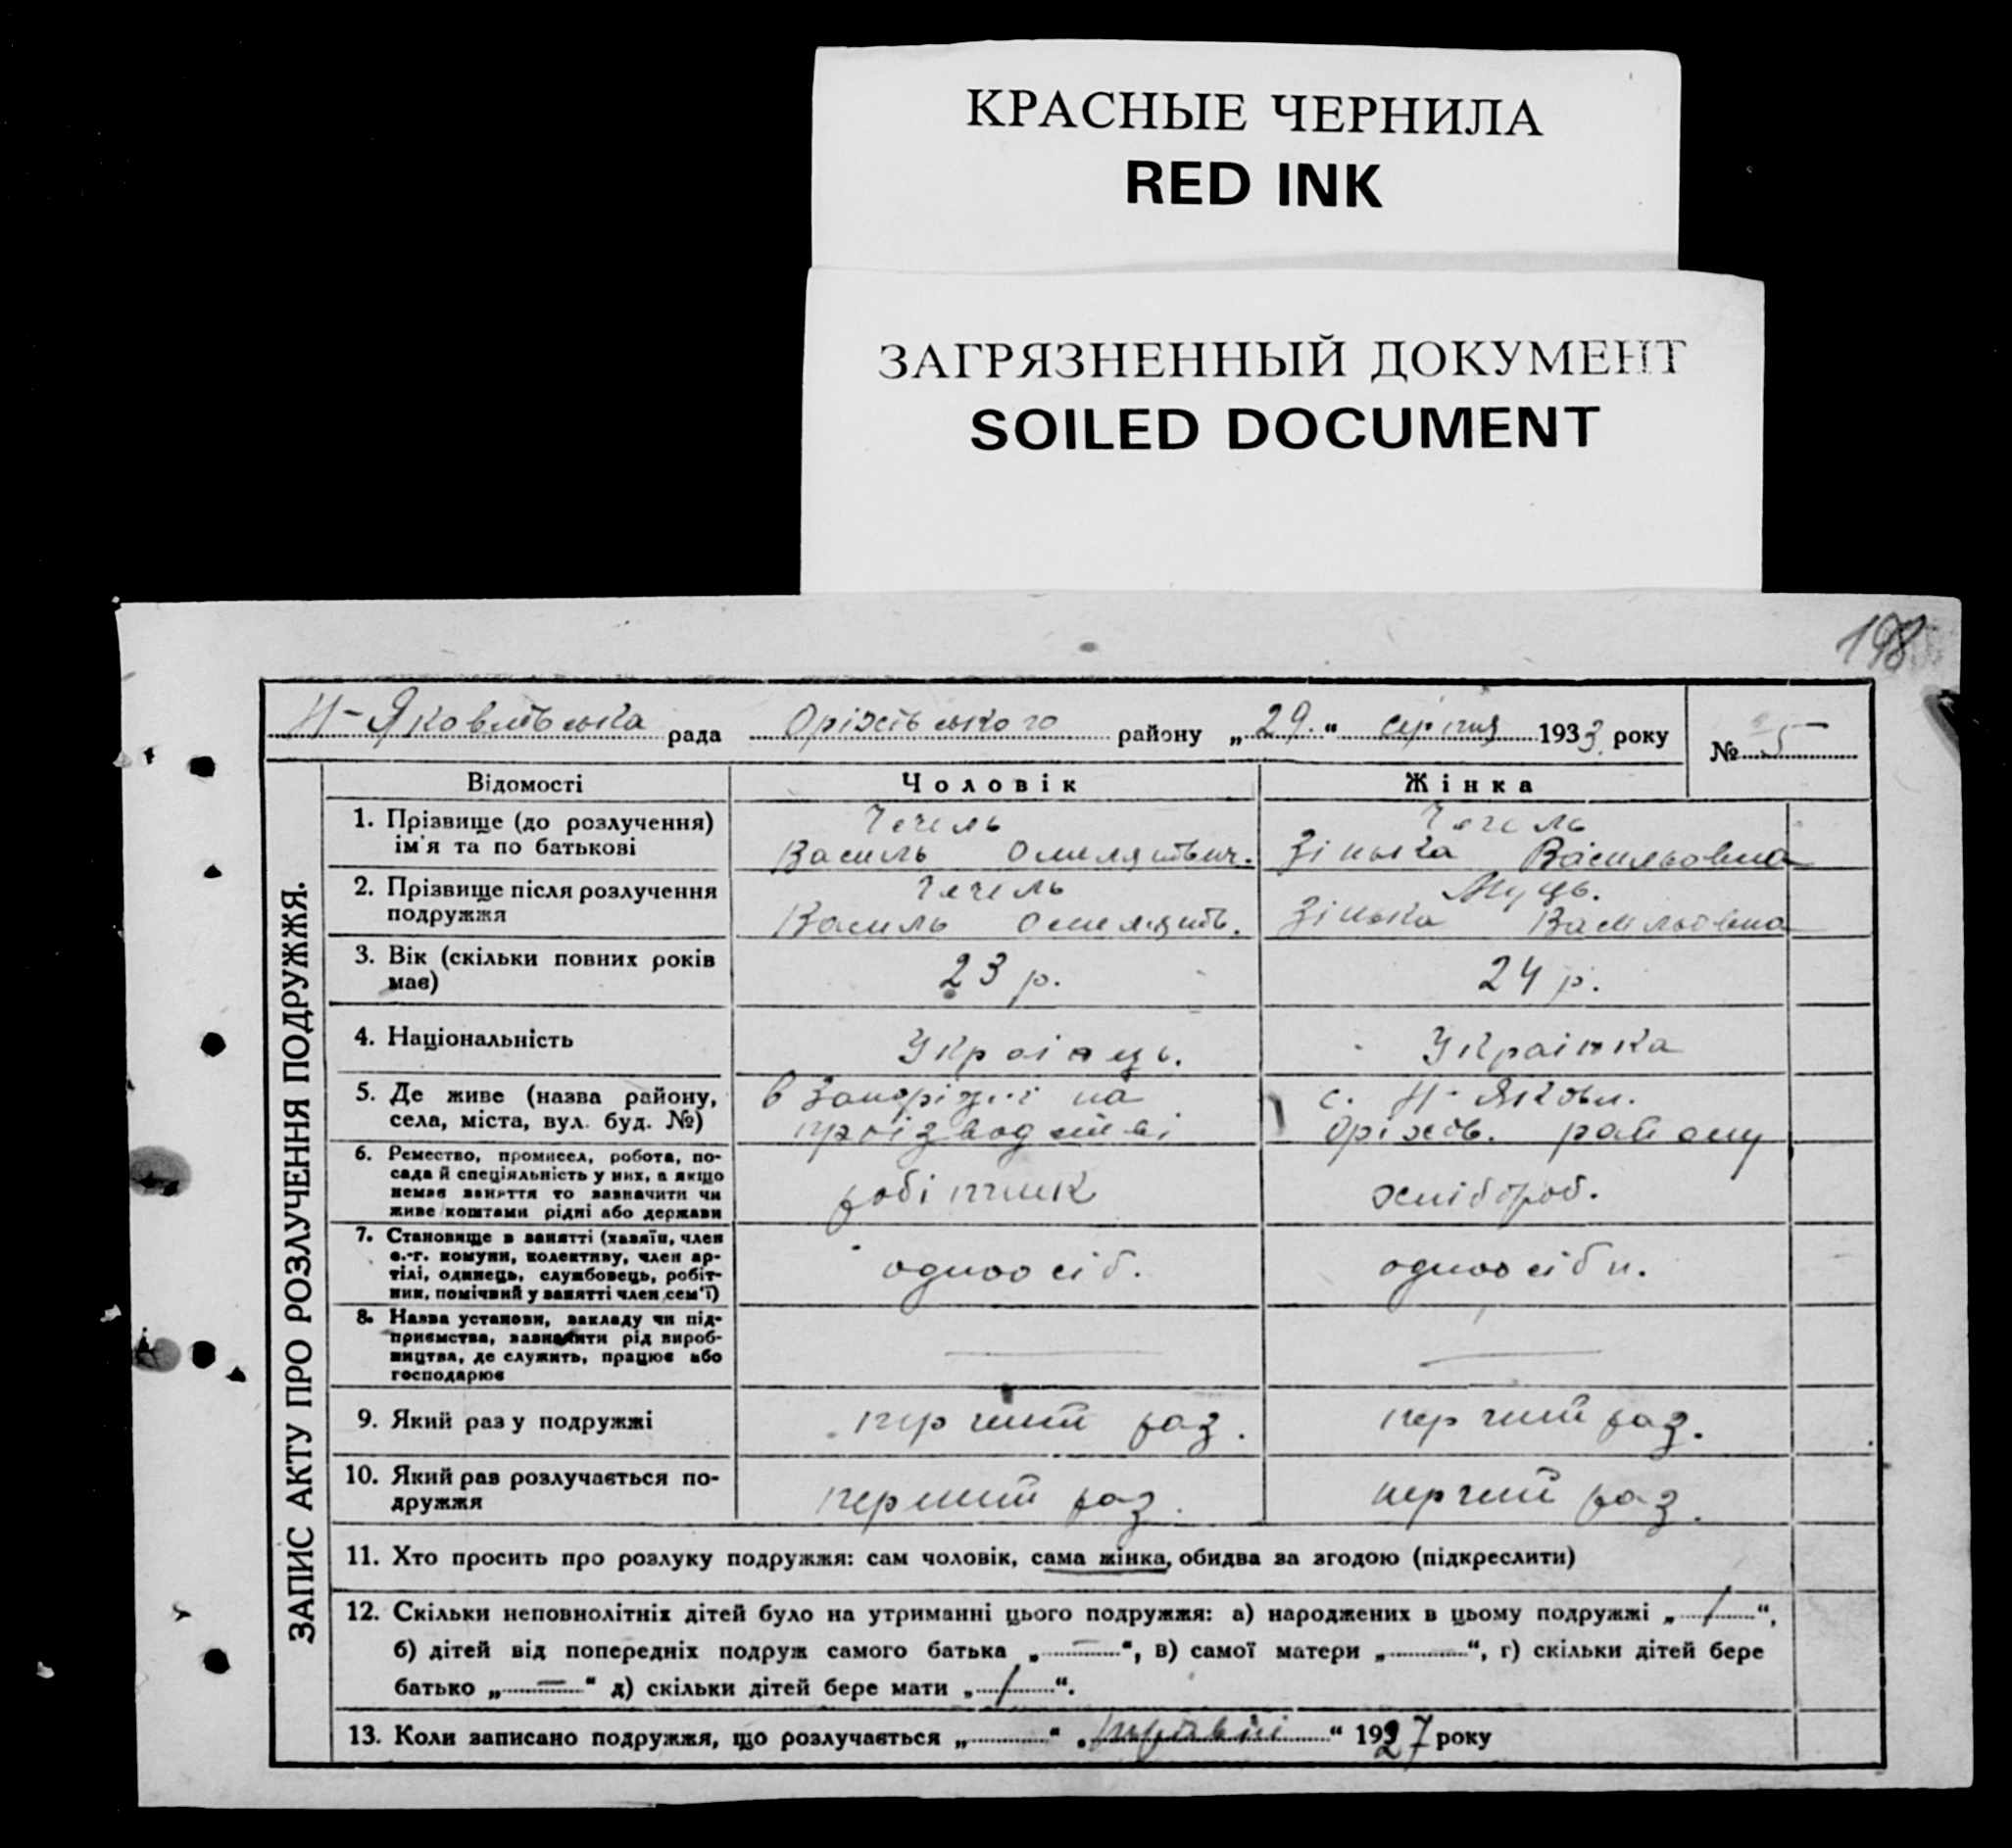 КРАСНЫЕ ЧЕРНИЛА
RED INK
ЗАГРЯЗНЕННЫЙ ДОКУМЕНТ
SOILED DOCUMENT
198
Н-Яковлівська рада Оріхівського району „29.“ серпня 1933 року № 5
ЗАПИС АКТУ ПРО РОЗЛУЧЕННЯ ПОДРУЖЖЯ.
Відомості Чоловік Жінка
1. Прізвище (до розлучення) Чечель Чечель
ім'я та по батькові Василь Омелянович. Зінька Васильовна
2. Прізвище після розлучення Чечель Муць.
подружжя Василь Омелянов. Зінька Васильовна
3. Вік (скільки повних років 23 р. 24 р.
має)
4. Національність Українець. Українка
5. Де живе (назва району, в Запоріжжі на с. Н-Яковл.
села, міста, вул. буд. №) проізводстві Оріхів. району
6. Ремество, промисел, робота, по-
сада й спеціяльність у них, а якщо
немає заняття то зазначити чи робітник хлібороб.
живе коштами рідні або держави
7. Становище в занятті (хазяїн, член
с.-г. комуни, колективу, член ар-
тілі, одинець, службовець, робіт- одноосіб. одноосібн.
ник, помічний у занятті член сем'ї)
8. Назва установи, закладу чи під-
приємства, зазначити рід вироб-
ництва, де служить, працює або
господарює
9. Який раз у подружжі перчий раз. перчий раз.
10. Який раз розлучається по- перший раз. перчий раз.
дружжя
11. Хто просить про розлуку подружжя: сам чоловік, сама жінка, обидва за згодою (підкреслити)
12. Скільки неповнолітніх дітей було на утриманні цього подружжя: а) народжених в цьому подружжі „1“,
б) дітей від попередніх подруж самого батька „—“, в) самої матери „“, г) скільки дітей бере
батько „—“ д) скільки дітей бере мати „1“.
13. Коли записано подружжя, що розлучається „“ „“ 1927 року